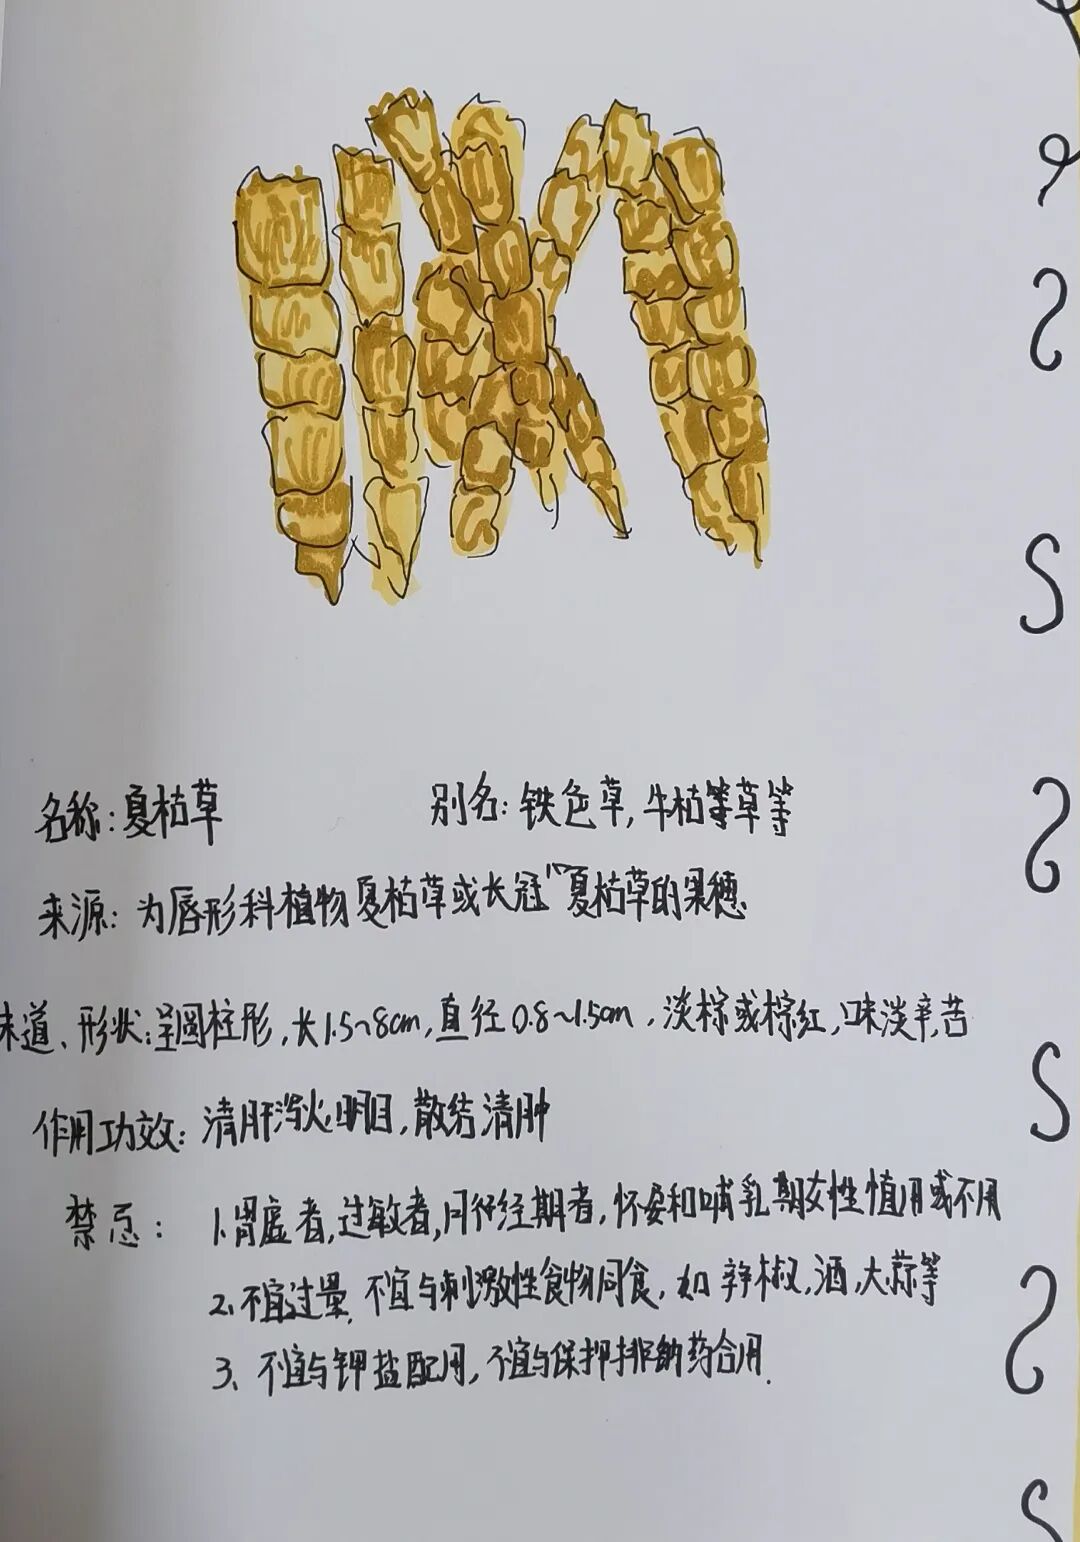 名称:夏枯草 别名:铁色草,牛枯等草等
来源:为唇形科植物夏枯草或长冠夏枯草的果穗
味道、形状:呈圆柱形,长1.5~8cm,直径0.8~1.5cm,淡棕或棕红,味淡辛,苦
作用功效:清肝泻火明目,散结清肿
禁忌: 1.肾虚者,过敏者,月经期者,怀孕和哺乳期女性慎用或不用
2.不宜过量,不宜与刺激性食物同食,如辣椒,酒,大蒜等
3、不宜与钾盐配用,不宜与保钾排钠药合用.